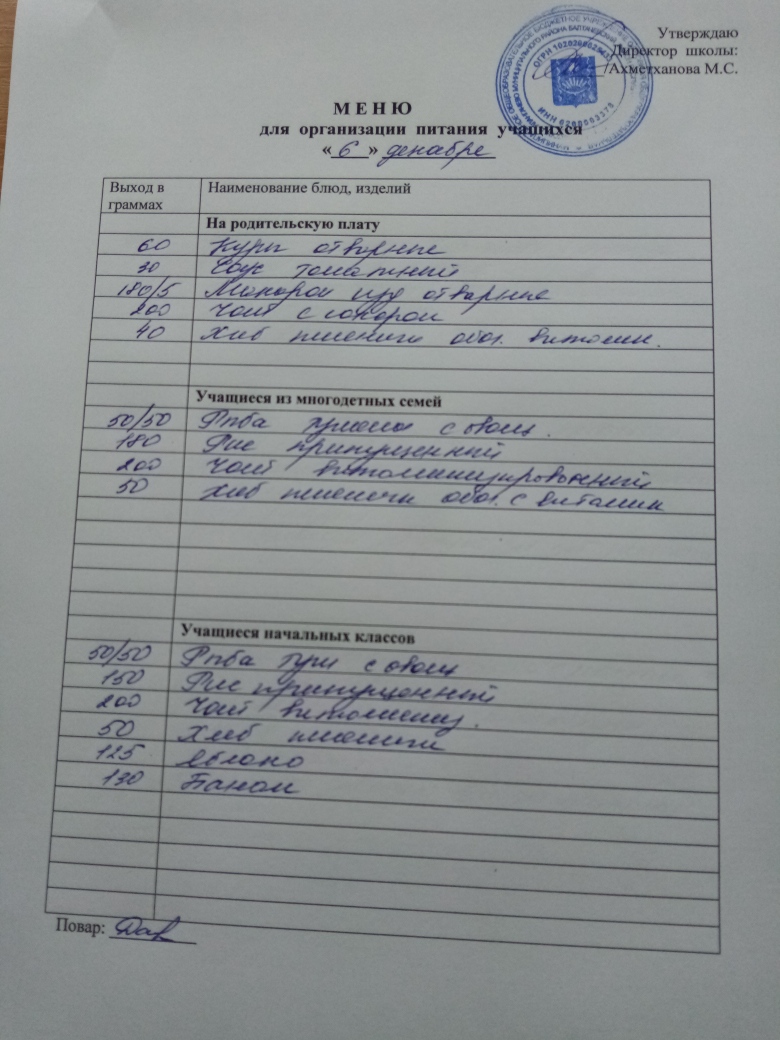 Утверждаю
Директор школы:
/Ахметханова М.С.
ОГРН
ИНН
М Е Н Ю
для организации питания учащихся
« 6 » декабре
Выход в граммах Наименование блюд, изделий
На родительскую плату
60 Куры отварные
30 Соус томатный
180/5 Макарон изд отварные
200 Чай с сахаром
40 Хлеб пшеничн обог. витамин.
Учащиеся из многодетных семей
50/50 Рыба тушеная с овощ.
180 Рис припущенный
200 Чай витаминизированный
50 Хлеб пшеничн обог. с витамин
Учащиеся начальных классов
50/50 Рыба туш с овощ
150 Рис припущенный
200 Чай витаминиз.
50 Хлеб пшеничн
125 Яблоко
130 Банан
Повар: